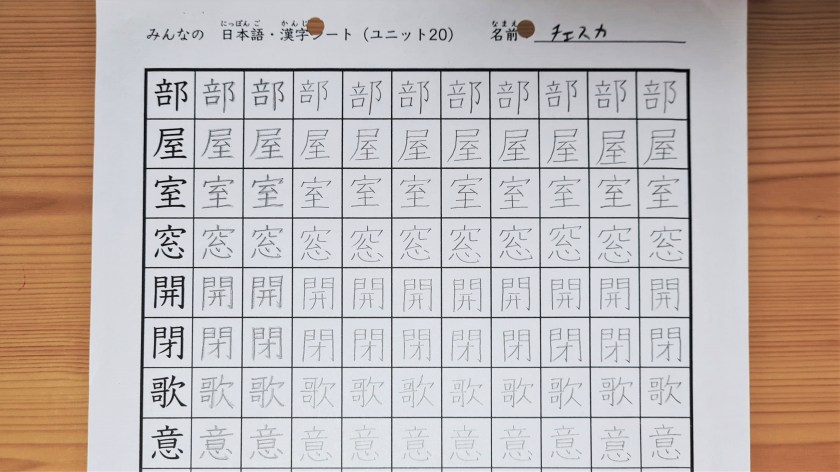 みんなの 日本語・漢字シート（ユニット20） 名前 チェスカ
部 部 部 部 部 部 部 部 部 部 部
屋 屋 屋 屋 屋 屋 屋 屋 屋 屋 屋
室 室 室 室 室 室 室 室 室 室 室
窓 窓 窓 窓 窓 窓 窓 窓 窓 窓 窓
開 開 開 開 開 開 開 開 開 開 開
閉 閉 閉 閉 閉 閉 閉 閉 閉 閉 閉
歌 歌 歌 歌 歌 歌 歌 歌 歌 歌 歌
意 意 意 意 意 意 意 意 意 意 意